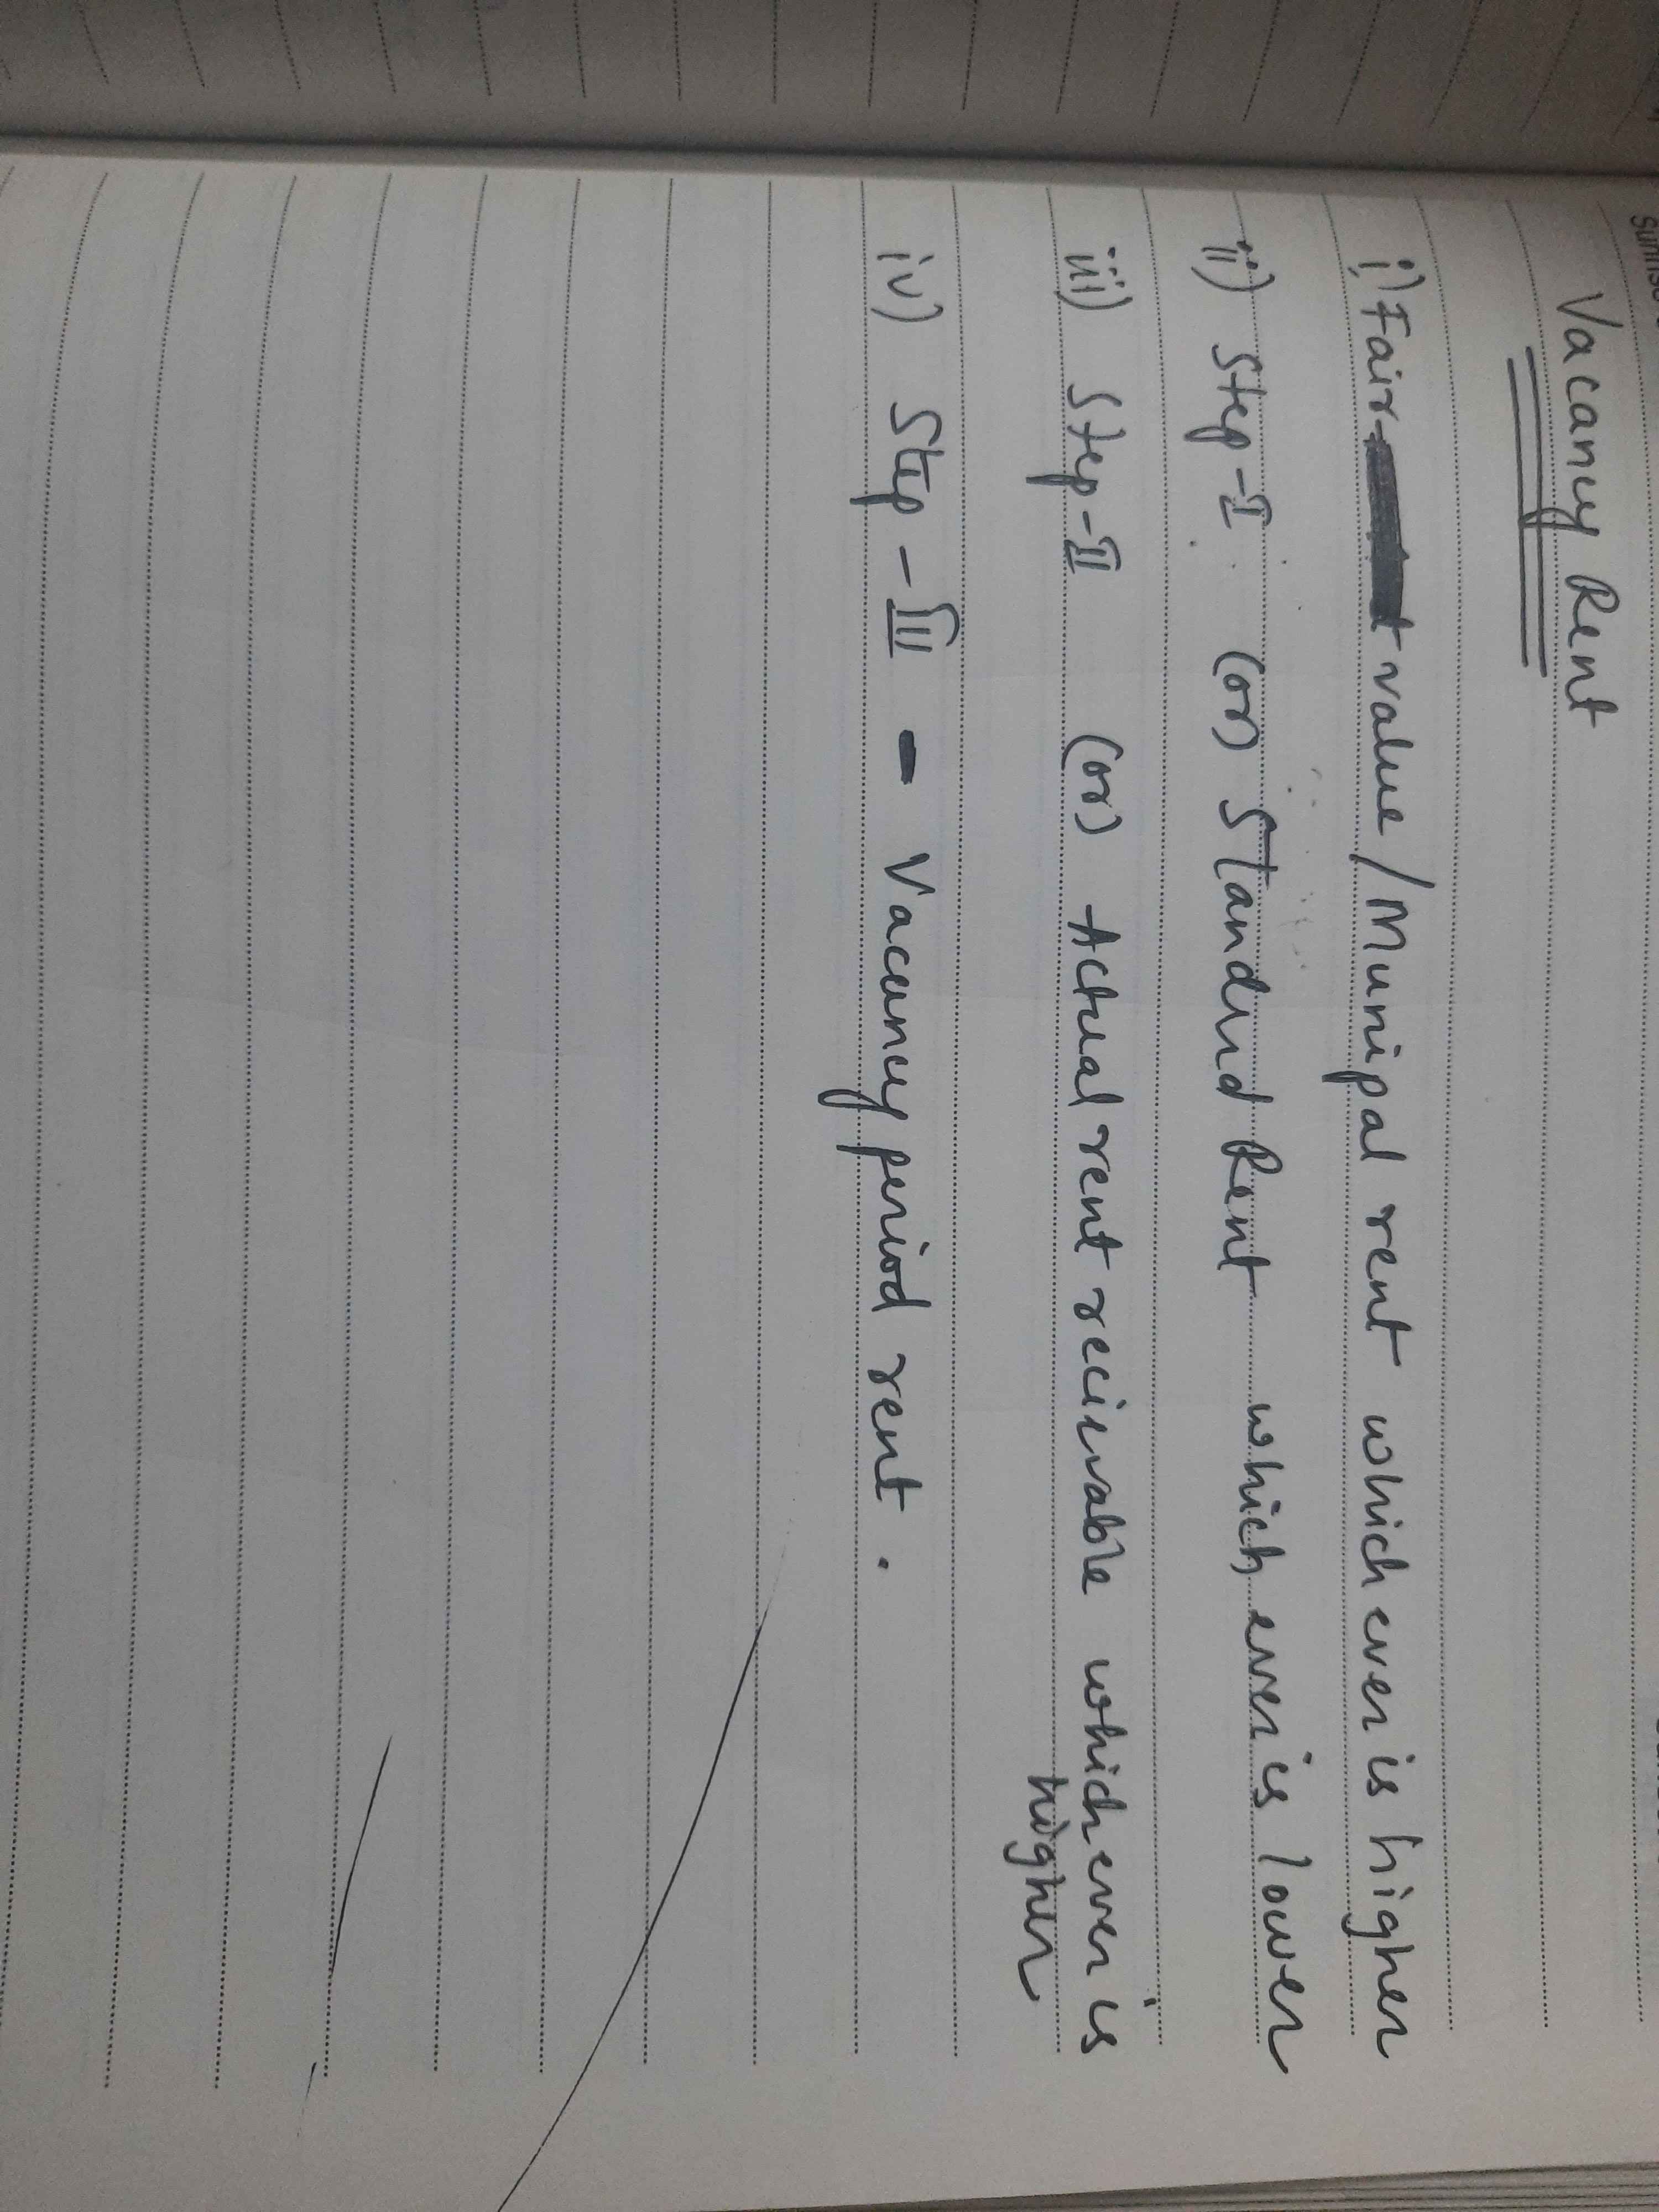 Vacancy Rent
i) Fair value/Munipal rent which ever is higher
ii) Step-I (or) Standard Rent which ever is lower
iii) Step-II (or) Actual rent recievable which ever is
higher
iv) Step-III - Vacancy period rent.